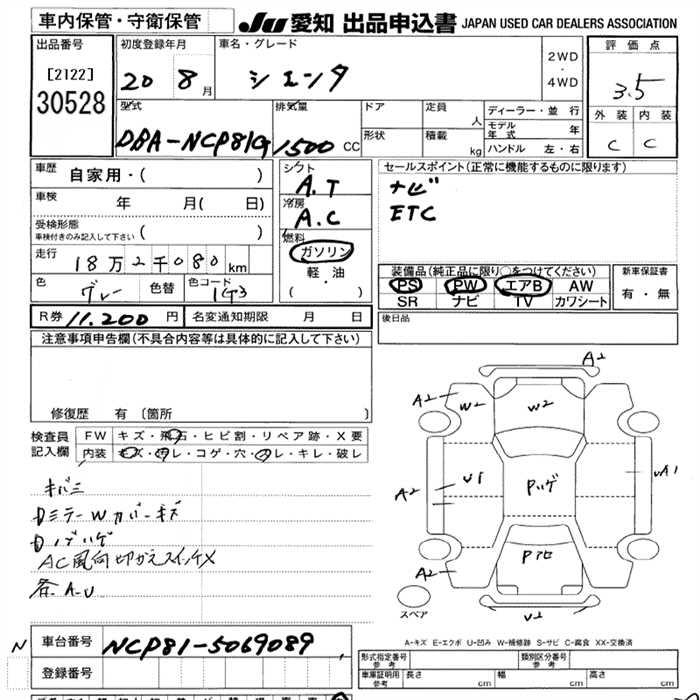 車内保管・守衛保管
JU 愛知 出品申込書 JAPAN USED CAR DEALERS ASSOCIATION
出品番号
[2122]
30528
初度登録年月
20 8月
車名・グレード
シエンタ
2WD
・
4WD
評価点
3.5
外装 内装
C C
型式
DBA-NCP81G
排気量
1500 CC
ドア
定員
人
形状
積載
kg
ディーラー・並行
モデル年式 年
ハンドル 左・右
車歴
自家用・( )
車検 年 月( 日)
受検形態
車検付きのみ記入して下さい ( )
走行
18万2千080km
色
グレー
色替
色コード
シフト
A.T
冷房
A.C
燃料
ガソリン
軽・油
( ・ )
セールスポイント(正常に機能するものに限ります)
ナビ
ETC
装備品(純正品に限り○をつけてください)
PS PW エアB AW
SR ナビ TV カワシート
新車保証書
有・無
R券 11,200 円 名変通知期限 月 日
後日品
注意事項申告欄(不具合内容等は具体的に記入して下さい)
修復歴 有 [箇所 ]
検査員
記入欄
FW キズ・飛石・ヒビ割・リペア跡・X要
内装 キズ・汚レ・コゲ・穴・スレ・キレ・破レ
キバミ
Dミラー Wカバーキズ
Dノブハゲ
AC風向切かえスイッチX
各A.U
A2
A2
W2
W2
A2
U1
Pハゲ
UA1
A2
Pアセ
U2
スペア
A-キズ E-エクボ U-凹み W-補修跡 S-サビ C-腐食 XX-交換済
N
車台番号 NCP81-5069089
登録番号
形式指定番号
参考
類別区分番号
参考
車庫証明用
参考
長さ cm 幅 cm 高さ cm